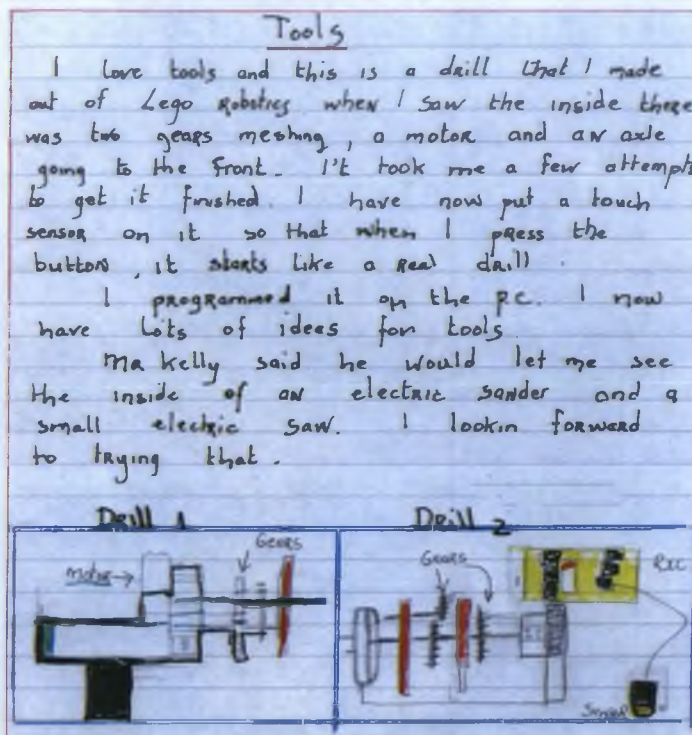 Tools
I love tools and this is a drill that I made
out of Lego Robotics when I saw the inside there
was two gears meshing, a motor and an axle
going to the front. I't took me a few attempts
to get it finished. I have now put a touch
sensor on it so that when I press the
button, it starts like a real drill.
I programmed it on the P.C. I now
have lots of ideas for tools
Mr Kelly said he would let me see
the inside of an electric sander and a
small electric saw. I lookin forward
to trying that.
Drill 1
Drill 2
motor
Gears
Gears
RXC
Sensor